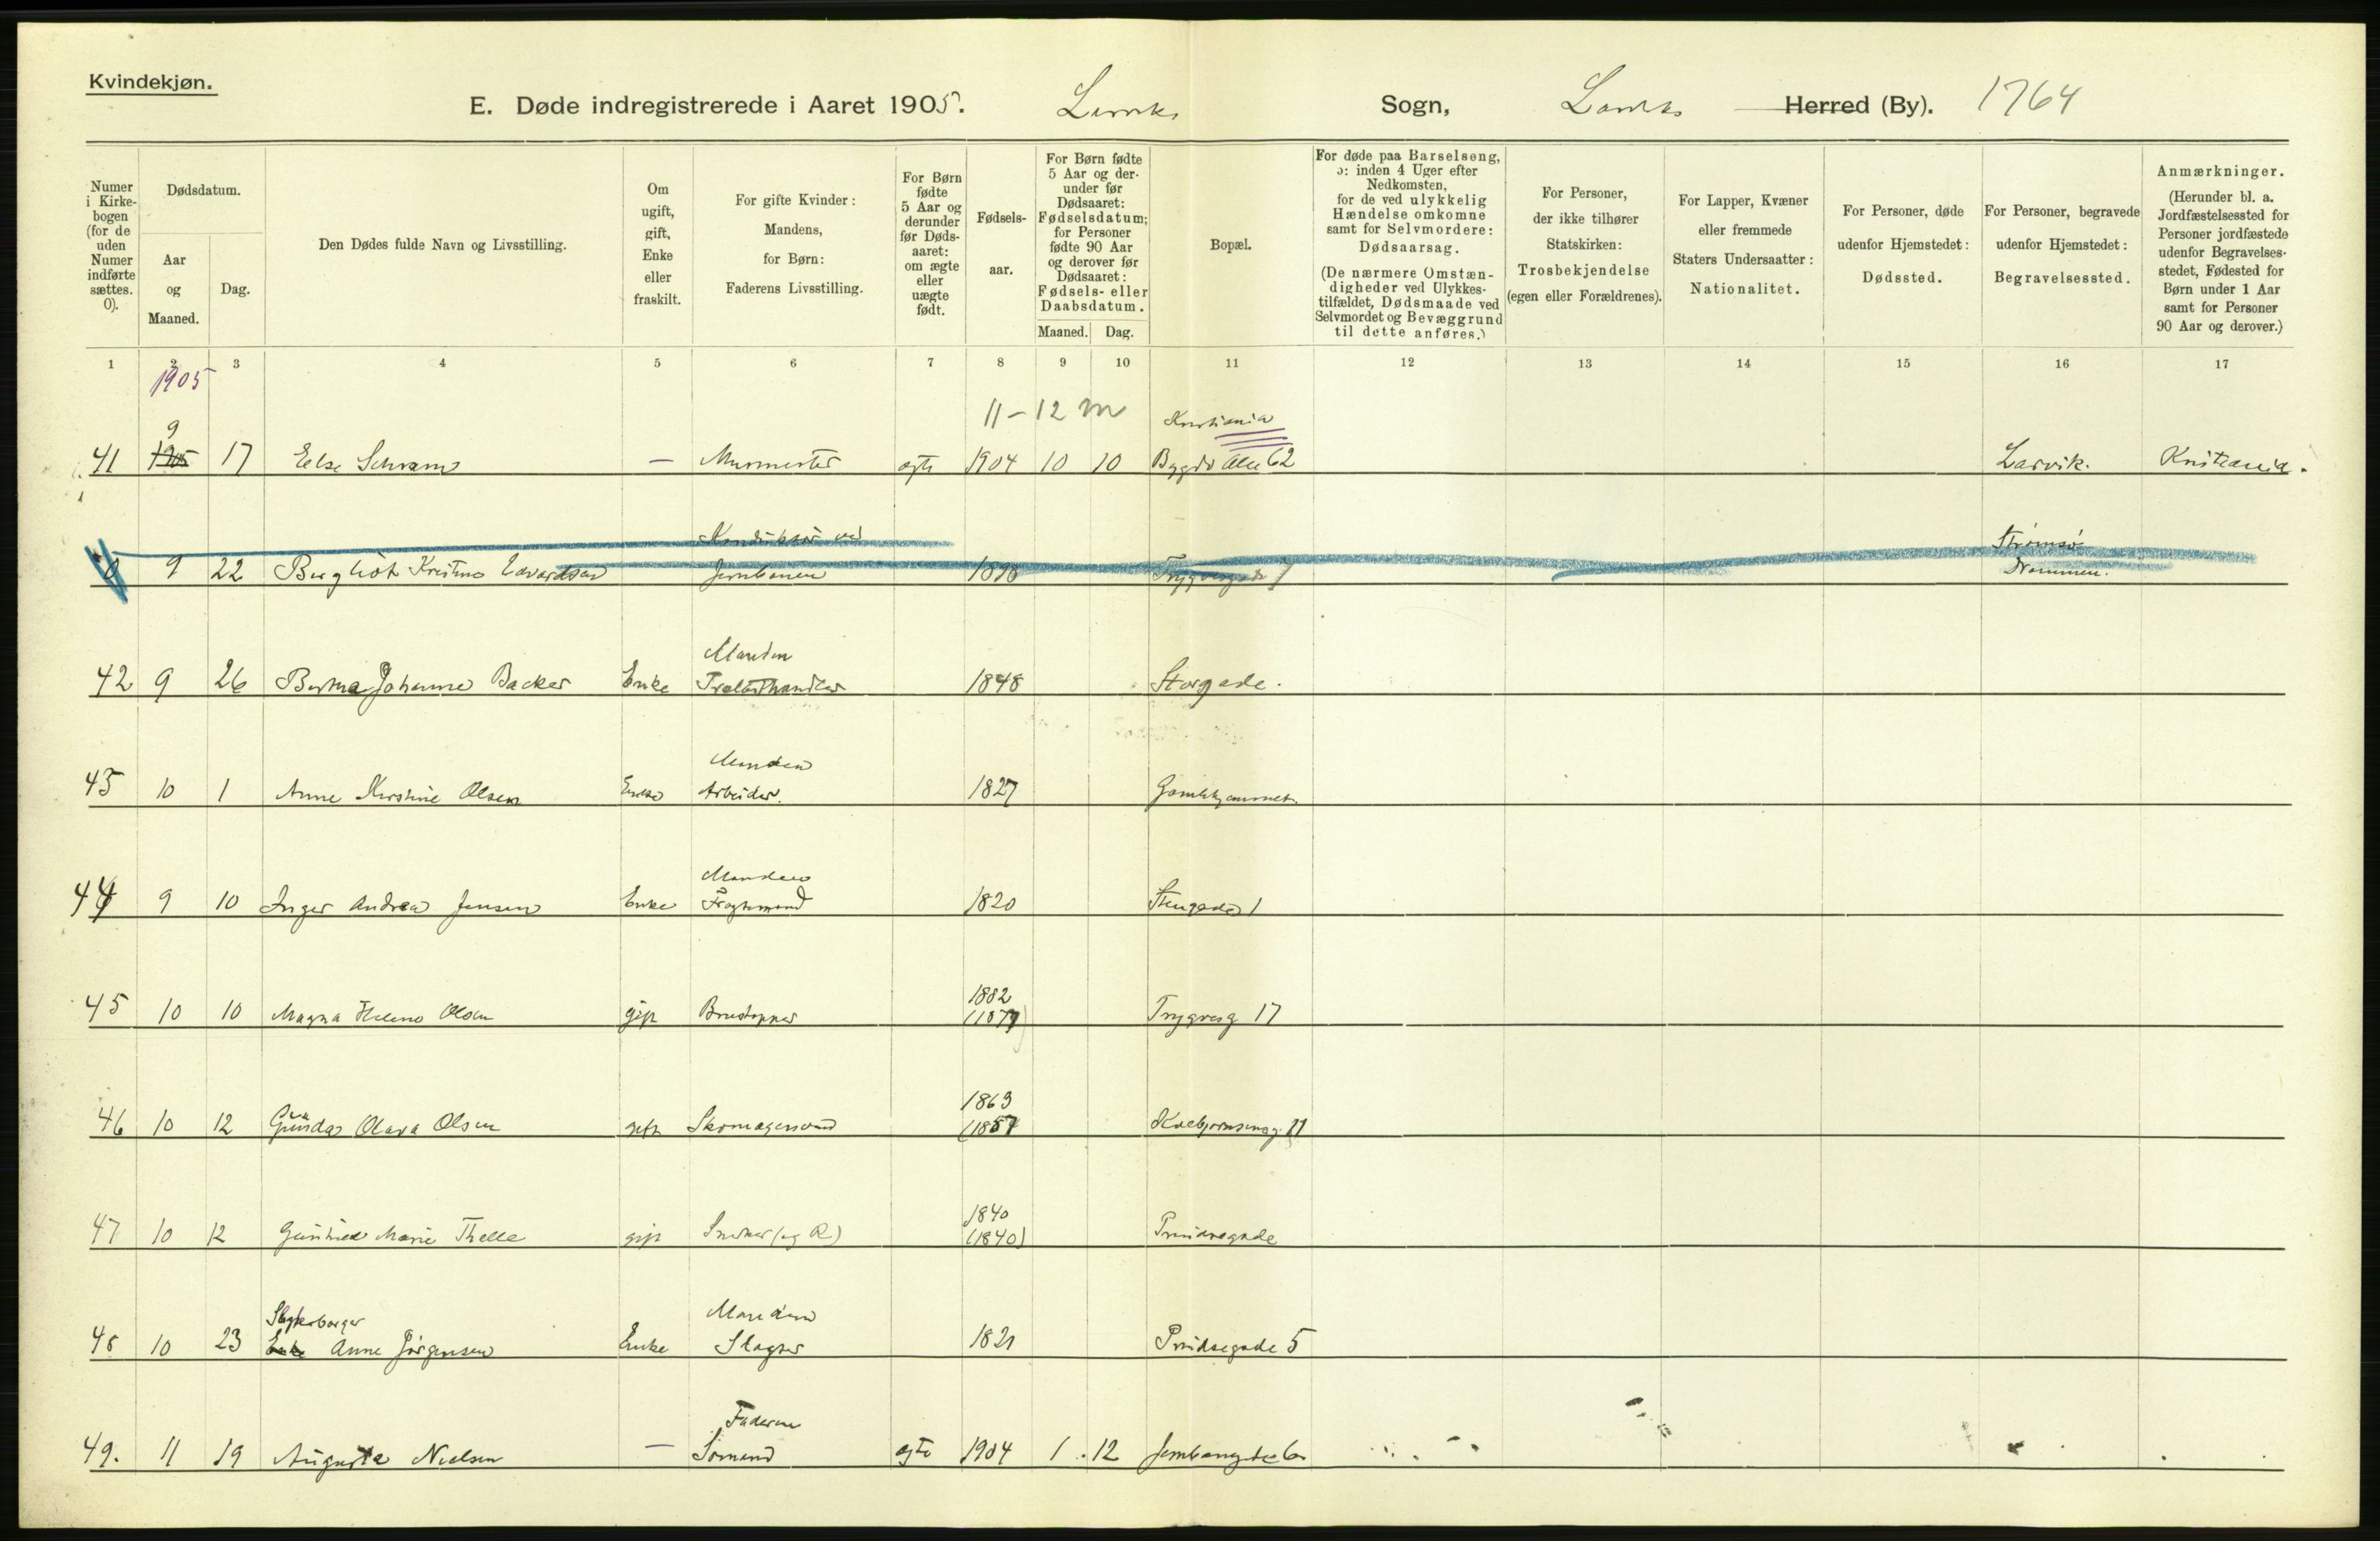 Kvindekjøn.
E. Døde indregistrerede i Aaret 1905. Larviks Sogn, Larviks Herred (By). 1764
Numer i Kirkebogen (for de uden Numer indførte sættes. 0).
Dødsdatum.
Aar og Maaned.
Dag.
Den Dødes fulde Navn og Livsstilling.
Om ugift, gift, Enke eller fraskilt.
For gifte Kvinder: Mandens, for Børn: Faderens Livsstilling.
For Børn fødte 5 Aar og derunder før Dødsaaret: om ægte eller uægte født.
Fødselsaar.
For Børn fødte 5 Aar og derunder før Dødsaaret: Fødselsdatum; for Personer fødte 90 Aar og derover før Dødsaaret: Fødsels- eller Daabsdatum.
Maaned. Dag.
Bopæl.
For døde paa Barselseng, ɔ: inden 4 Uger efter Nedkomsten, for de ved ulykkelig Hændelse omkomne samt for Selvmordere: Dødsaarsag.
(De nærmere Omstændigheder ved Ulykkestilfældet, Dødsmaade ved Selvmordet og Bevæggrund til dette anføres.)
For Personer, der ikke tilhører Statskirken: Trosbekjendelse (egen eller Forældrenes).
For Lapper, Kvæner eller fremmede Staters Undersaatter: Nationalitet.
For Personer, døde udenfor Hjemstedet: Dødssted.
For Personer, begravede udenfor Hjemstedet: Begravelsessted.
Anmærkninger.
(Herunder bl. a. Jordfæstelsessted for Personer jordfæstede udenfor Begravelsesstedet, Fødested for Børn under 1 Aar samt for Personer 90 Aar og derover.)
1 2 3 4 5 6 7 8 9 10 11 12 13 14 15 16 17
1905
11-12 m
9 Kristiania
41 1905 17 Else Schram — Murmester ægte 1904 10 10 Bygdø Alle 62 Larvik. Kristiania.
Konduktør ved Strømsø
0 9 22 Bergliot Kristine Edvardsen Jernbanen 1898 Trygvesgade 7 Drammen.
Manden
42 9 26 Berna Johanne Backer Enke Trælasthandler 1848 Storgade.
Manden
43 10 1 Anne Kirstine Olsen Enke Arbeider. 1827 Gamlehjemmet.
Manden
44 9 10 Inger Andrea Jensen Enke Fragtemand 1820 Stengaden 1
1882
45 10 10 Magna Helene Olsen gift (1879) Trygvesg 17
1863
46 10 12 Gunda Olava Olsen gift Skomagersvend (1857)
1840
47 10 12 Marie Thelle gift Snedker (1840)
Manden
48 10 23 Anne Jørgensen Enke Slagter 1821 Prindsegade 5
Faderen
49. 11 19 Augusta Nielsen — Sømand ægte 1904 1 12 6